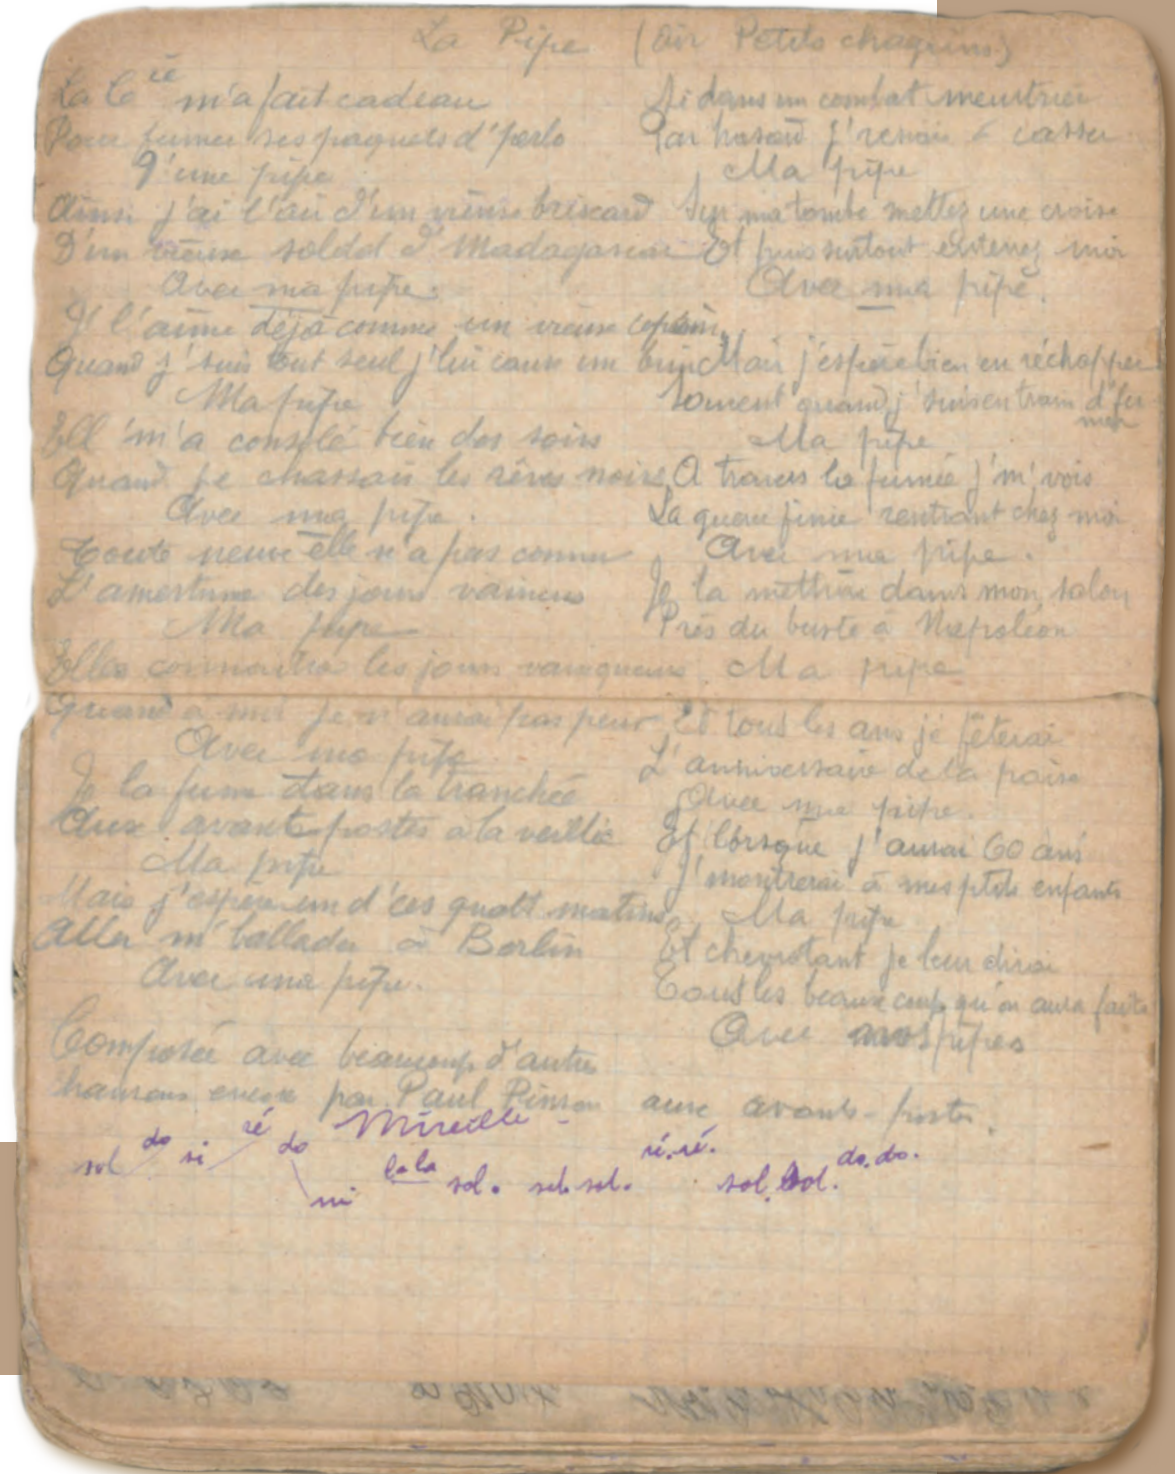 La Pipe (Air Petits chagrins)
La Cie m'a fait cadeau
Pour fumer ses paquets d'perlo
D'une pipe
Ainsi j'ai l'air d'un vieux briscard
D'un vieux soldat d'Madagascar
Avec ma pipe.
J'l'aime déjà comme un vieux copain,
Quand j'suis tout seul j'lui cause un brin
Ma pipe
Ell'm'a consolé bien des soirs
Quand je chassais les rêves noirs
Avec ma pipe.
Toute neuve elle n'a pas connu
L'amertume des jours vaincus
Ma pipe
Elle connaitra les jours vainqueurs
Quand à moi je n'aurai pas peur
Avec ma pipe
Je la fume dans la tranchée
Aux avants postes à la veillée
Ma pipe
Mais j'espère un d'ces quatt matins
Aller m'ballader à Berlin
Avec ma pipe.
Si dans un combat meurtrier
Par hasard j'venais à casser
Ma pipe
Sur ma tombe mettez une croix
Et puis surtout enterrez moi
Avec ma pipe.
Mais j'espère bien en réchapper
Souvent quand j'suis en train d'fumer
Ma pipe
A travers la fumée j'm'vois
La guerre finie rentrant chez moi
Avec ma pipe.
Je la mettrai dans mon salon
Près du buste à Napoléon
Ma pipe
Et tous les ans je fêterai
L'anniversaire de la paix
Avec ma pipe.
Et lorsque j'aurai 60 ans
J'montrerai à mes ptits enfants
Ma pipe
Et chevrotant je leur dirai
Tous les beaux coups qu'on aura faits
Avec nos pipes
Composée avec beaucoup d'autres
chansons encore par Paul Pinson aux avants-postes.
Mireille -
sol do si ré do mi la la sol. sol. sol. ré. ré. sol. sol. do. do.